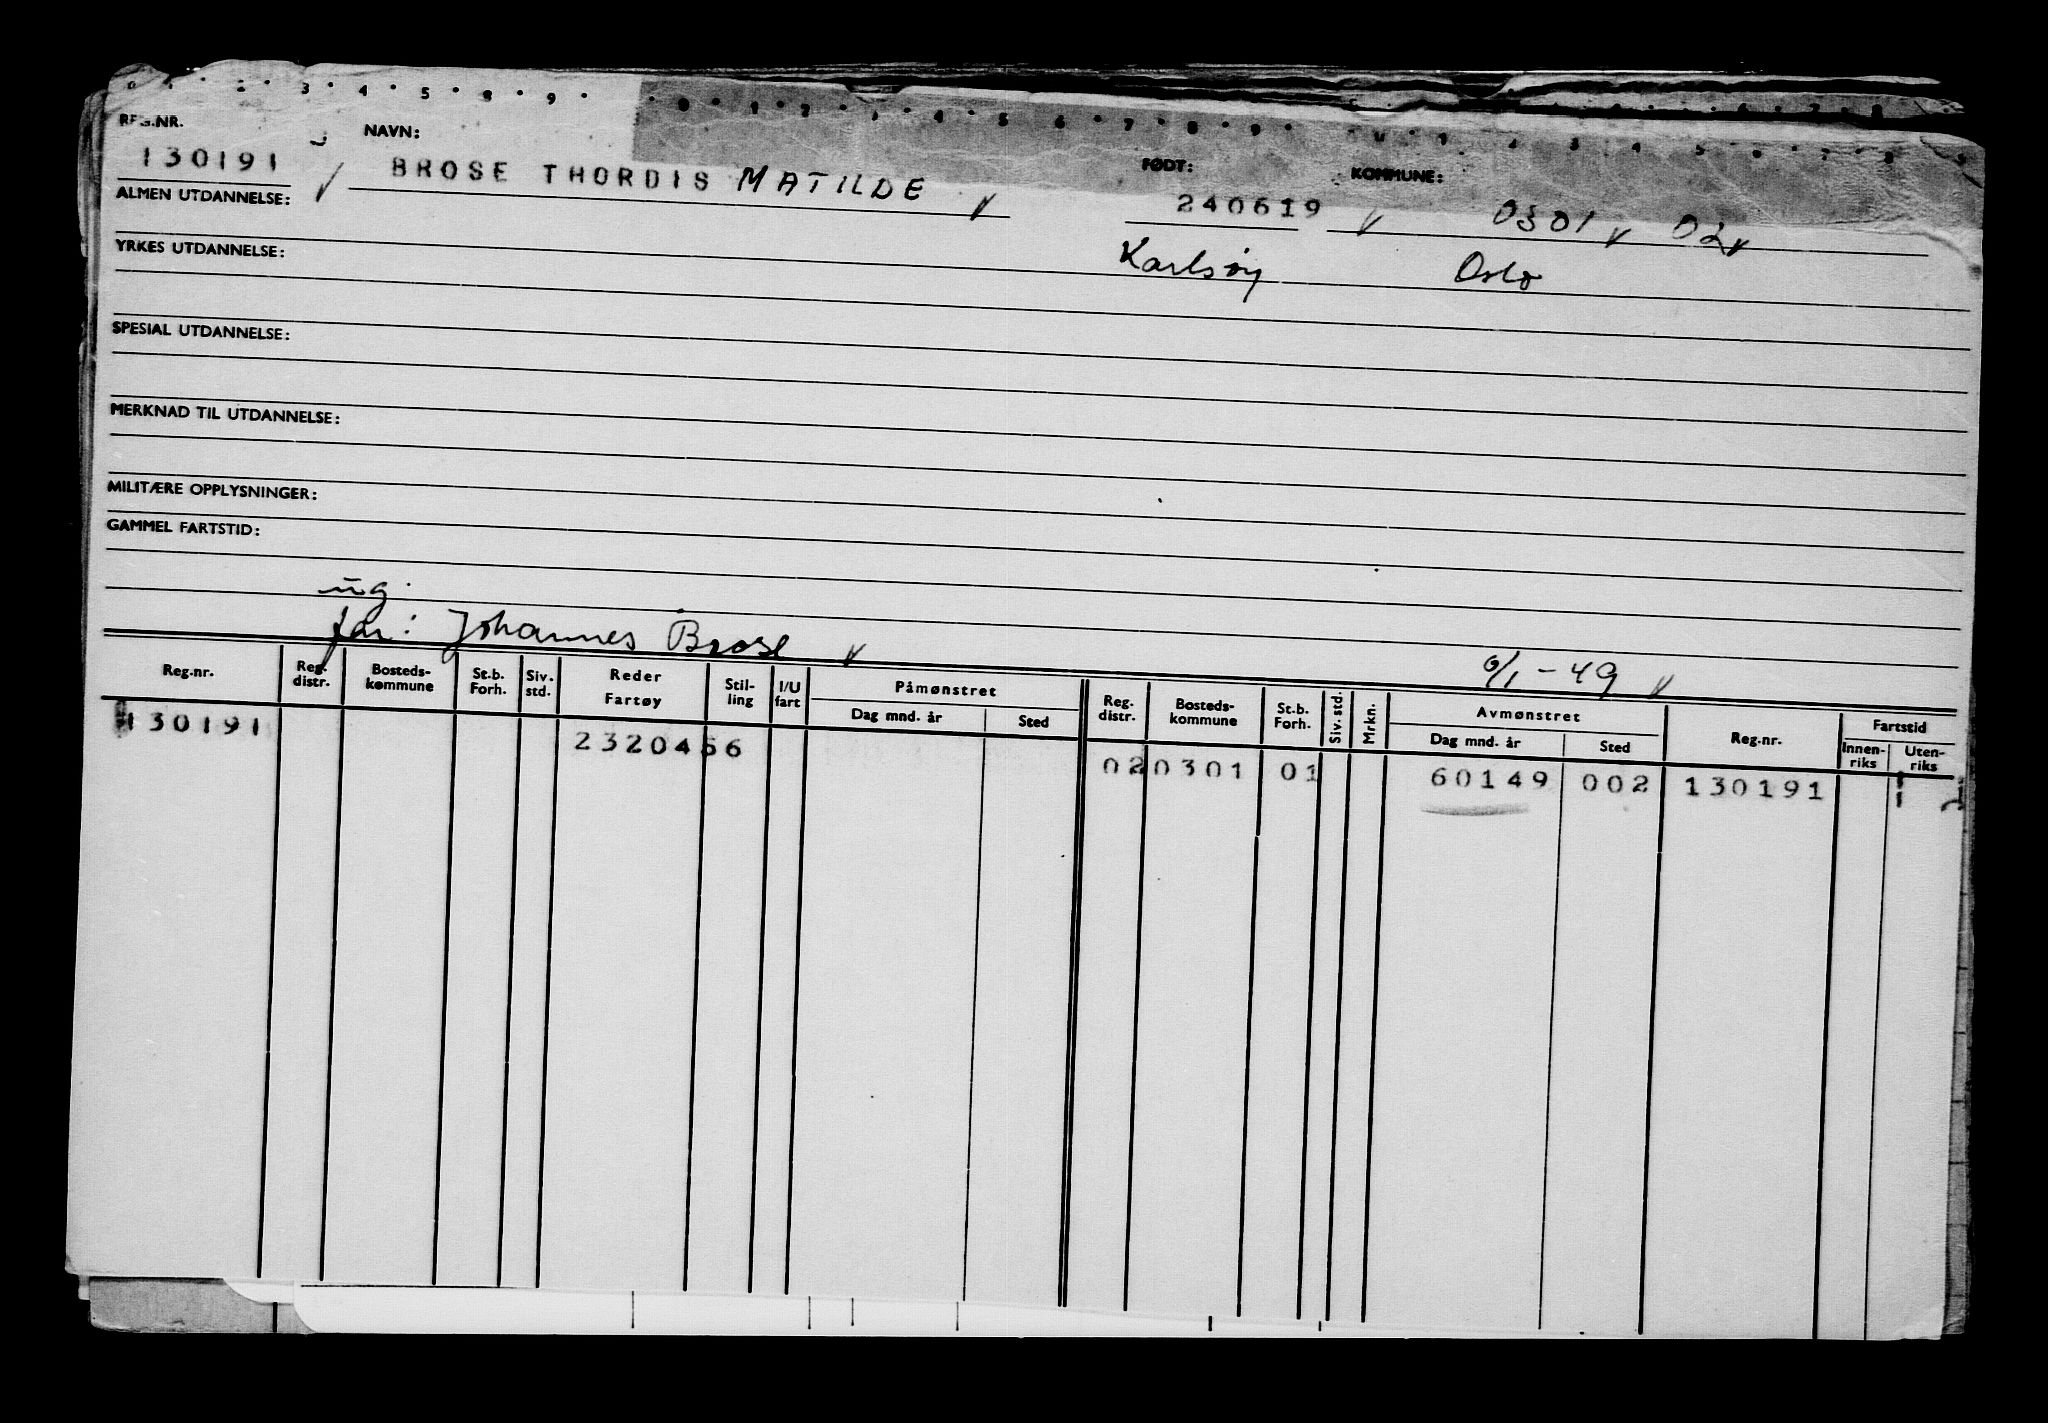 REG.NR.
130191
NAVN:
BROSE THORDIS MATILDE
FØDT:
240619
KOMMUNE:
0301 02
ALMEN UTDANNELSE:
Karlsøy Oslo
YRKES UTDANNELSE:
SPESIAL UTDANNELSE:
MERKNAD TIL UTDANNELSE:
MILITÆRE OPPLYSNINGER:
GAMMEL FARTSTID:
ug.
far: Johannes Brose
6/1-49
Reg.nr. Reg. distr. Bosteds-kommune St.b. Forh. Siv. std. Reder Fartøy Stil-ling I/U fart Påmønstret Dag mnd. år Sted Reg. distr. Bosteds-kommune St.b. Forh. Siv. std. Mrkn. Avmønstret Dag mnd. år Sted Reg.nr. Fartstid Innen-riks Uten-riks
130191 2320456 020301 01 60149 002 130191